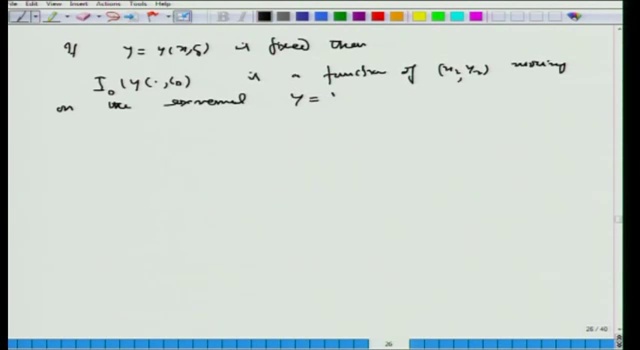 Edit View Insert Actions Tools Help
If y = y(x,ξ) is fixed then
I₀(y(·,ξ)) is a function of (x₂, y₂) moving
on the extremal y =
26 / 40
26